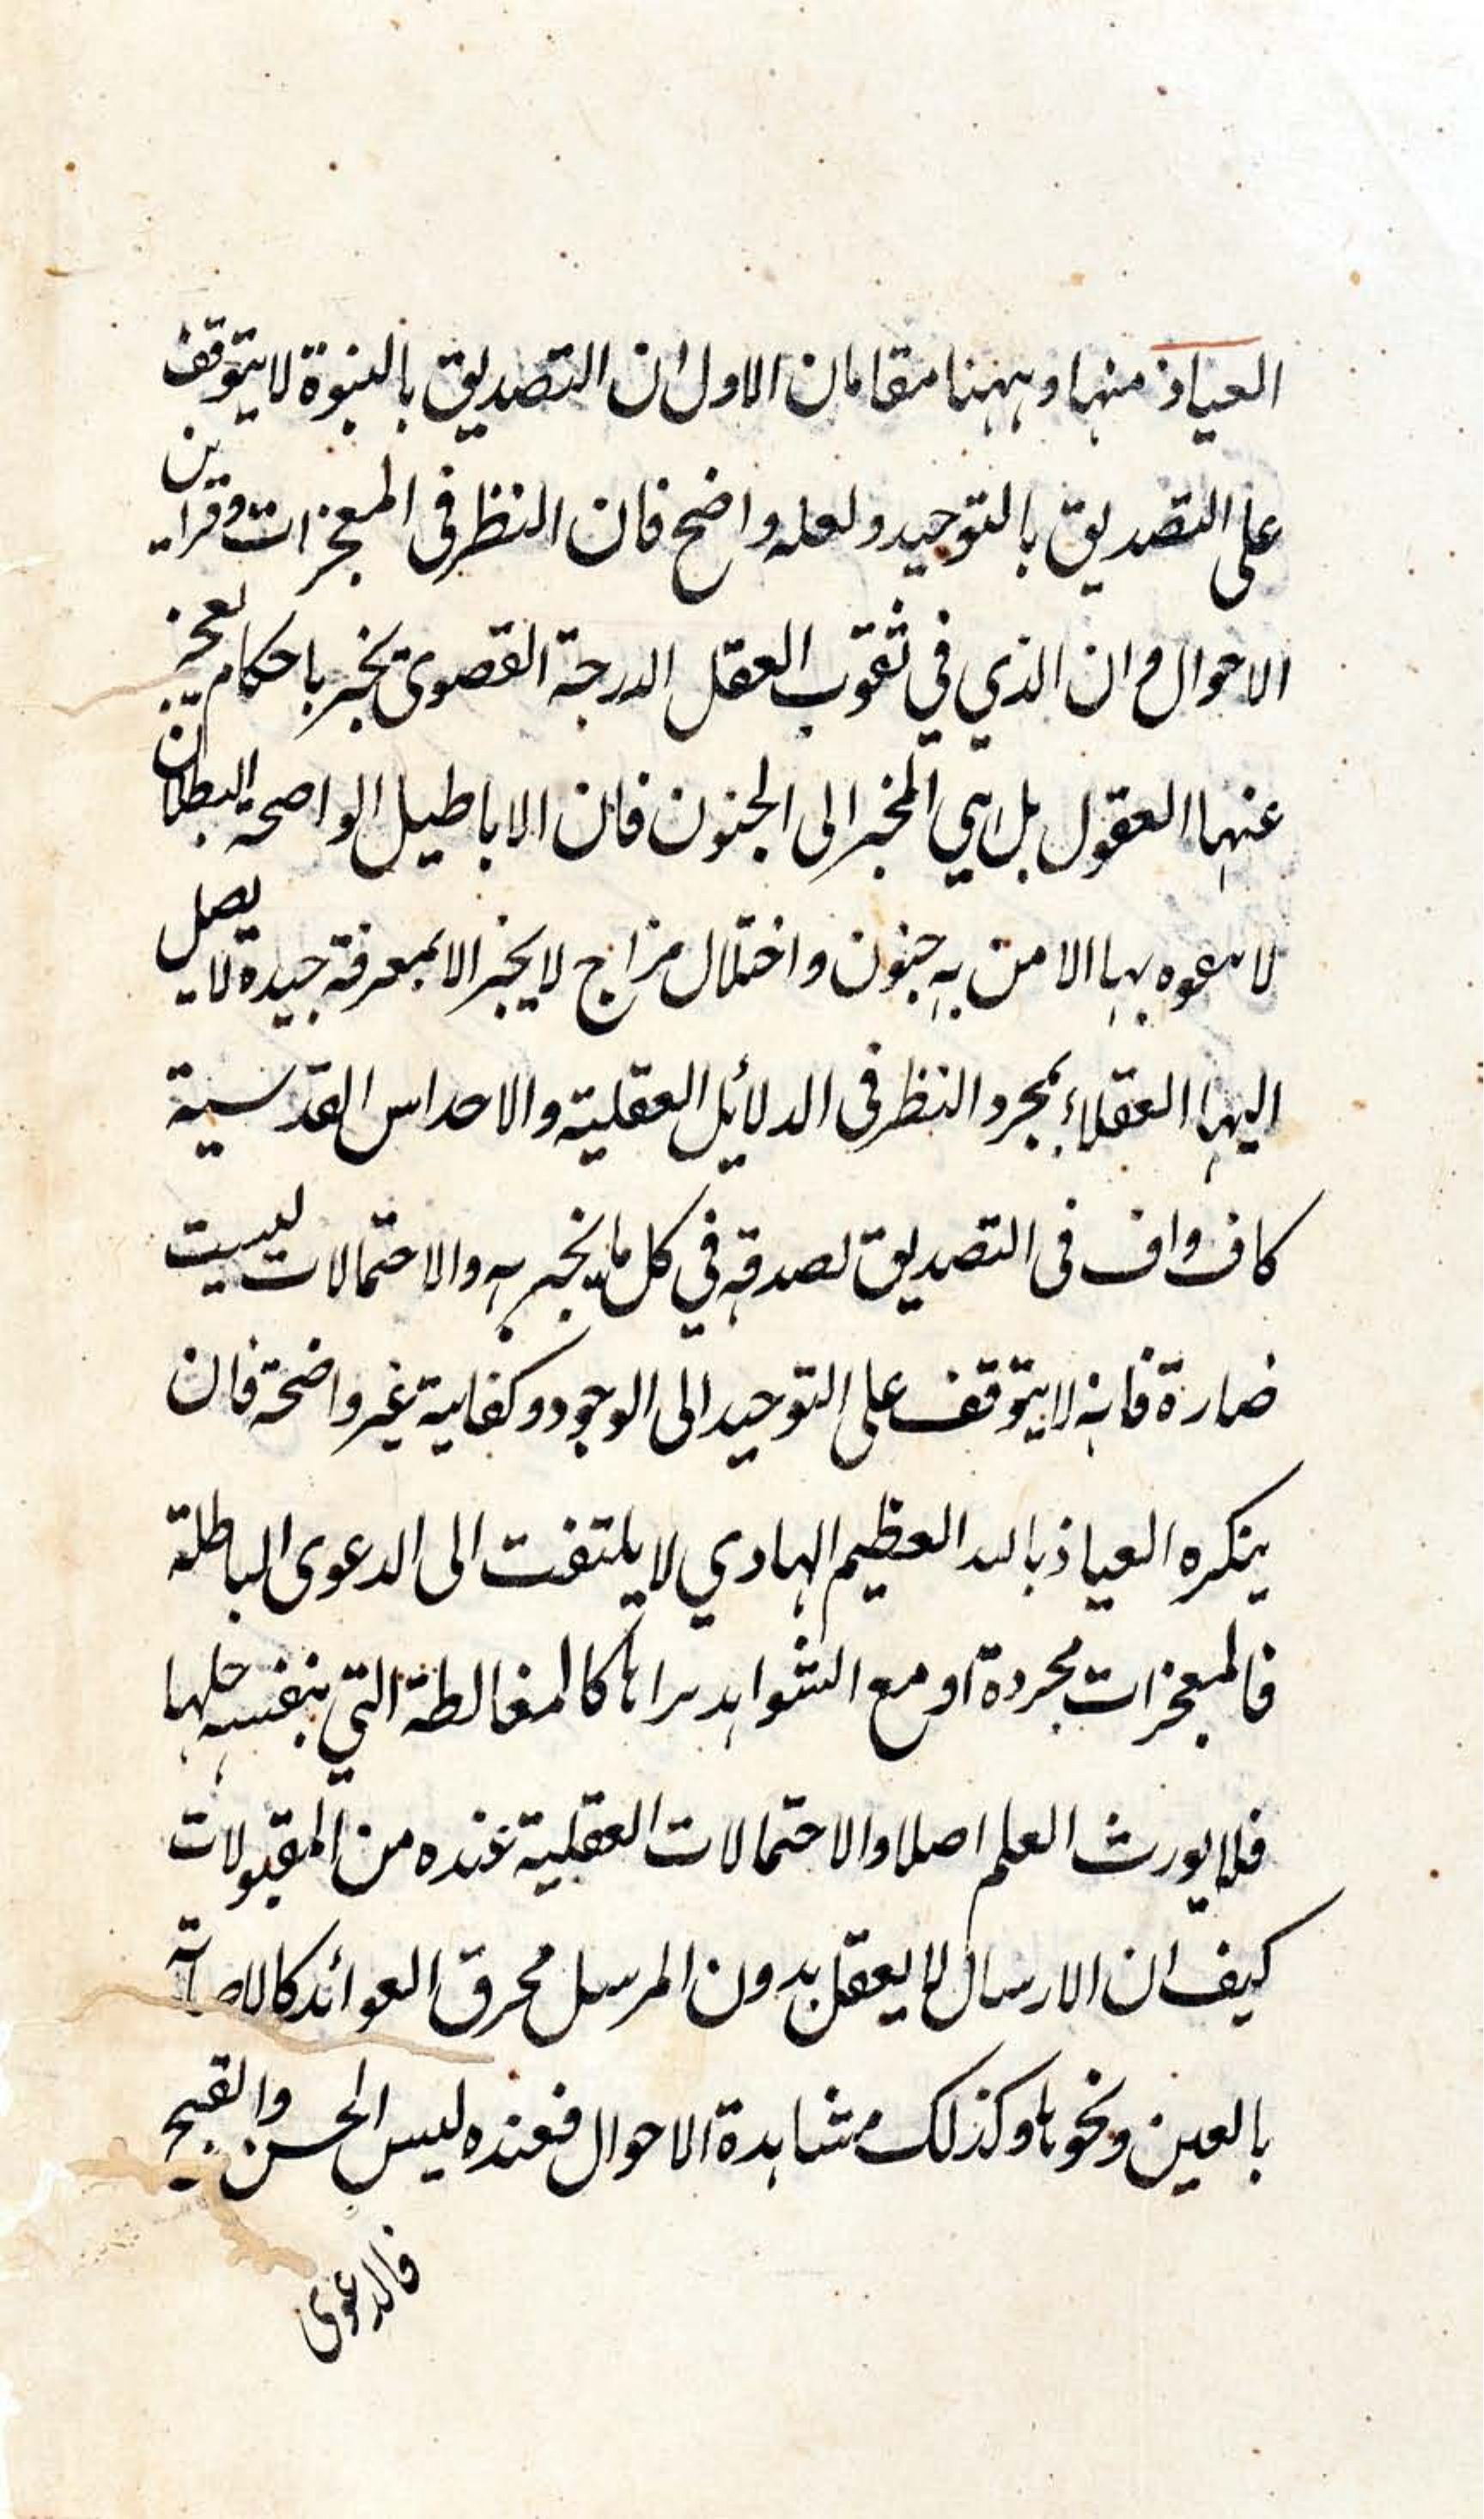 العياذ منها وههنا مقامان الاول ان التصديق بالنبوة لا يتوقف
على التصديق بالتوحيد ولعله واضح فان النظر فى المعجزات وقراين
الاحوال وان الذي في ثقوب العقل الدرجة القصوى يخبر باحكام يعجز
عنها العقول بل هي المخبر الى الجنون فان الاباطيل الواضحة البطلان
لا بها الا من به جنون واختلال مزاج لا يخبر الا بمعرفة جيدة لا يصل
اليها العقلاء بمجرد النظر فى الدلائل العقلية والاحداس القدسية
كاف واف فى التصديق لصدقه في كل ما يخبر به والاحتمالات ليست
ضارة فانه لا يتوقف على التوحيد الى الوجود وكفاية غير واضحة فان
ينكره العياذ بالله العظيم الهادي لا يلتفت الى الدعوى الباطلة
فالمعجزات مجردة او مع الشواهد كالمغالطة التي بنفسه حلها
فلا يورث العلم اصلا والاحتمالات العقلية عنده من المقبولات
كيف ان الارسال لا يعقل بدون المرسل محرق العوائد كالاصابة
بالعين ونحوها وكذلك مشاهدة الاحوال فعنده ليس الحسن والقبح
فالدعوى